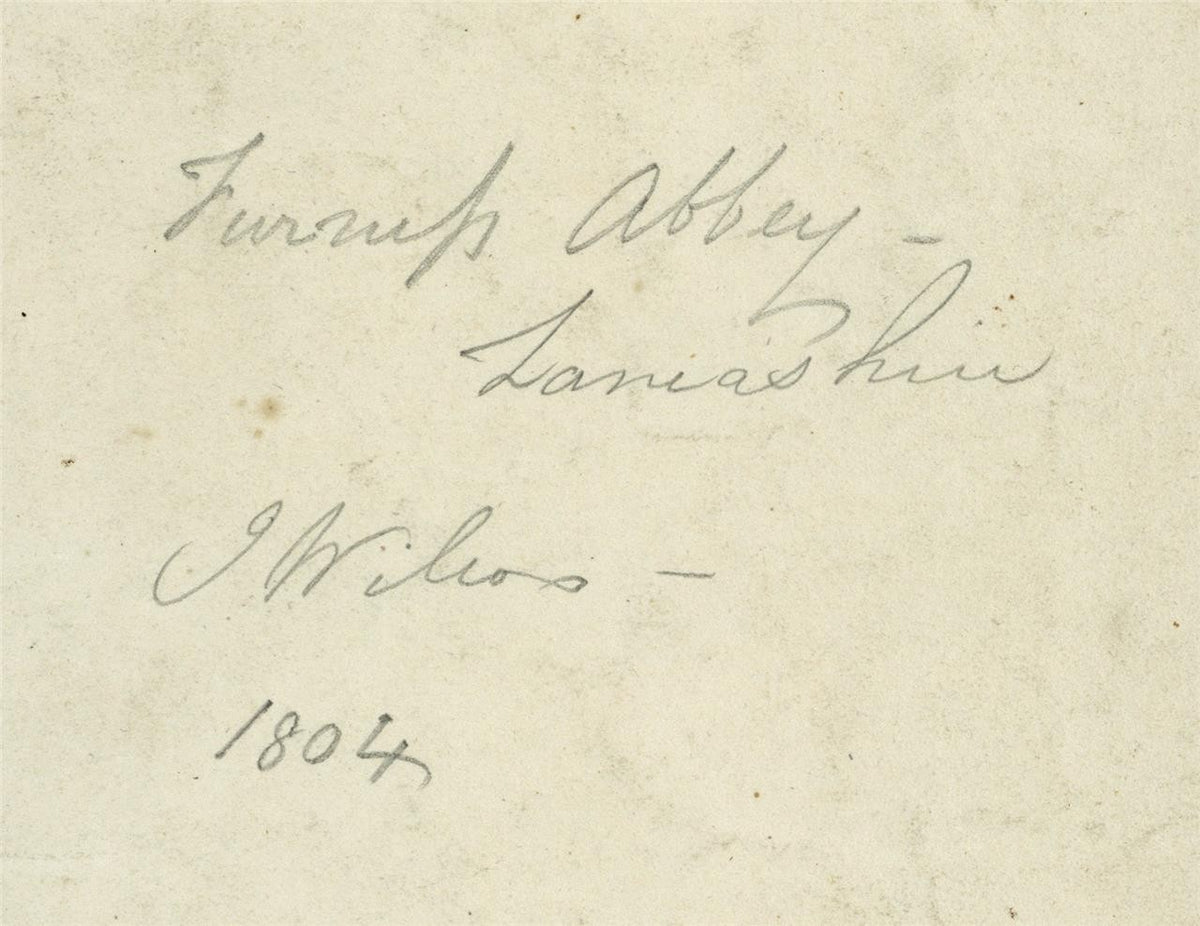 Furneſs Abbey -
Lancashire
J Wilcox -
1804